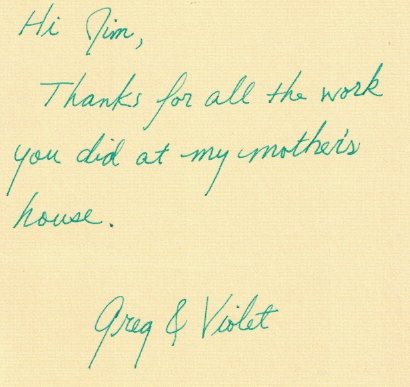 Hi Jim,
Thanks for all the work
you did at my mother's
house.
Greg & Violet